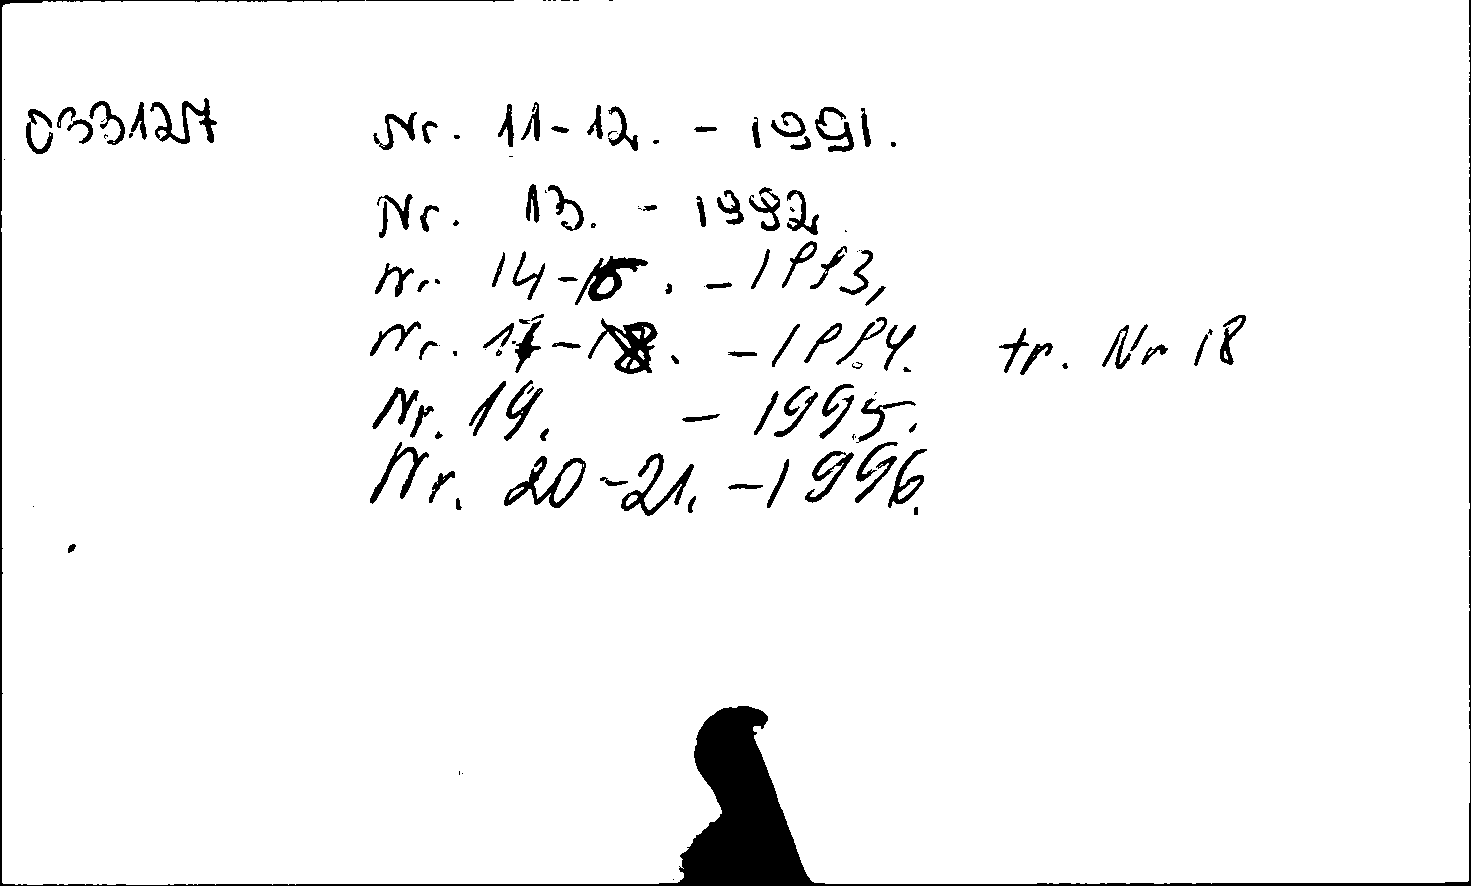 033127 Nr. 11-12. - 1991.
Nr. 13. - 1992
Nr. 14-16. - 1993,
Nr. 17-18. - 1994. tr. Nr 18
Nr. 19. - 1995.
Nr. 20-21. - 1996.